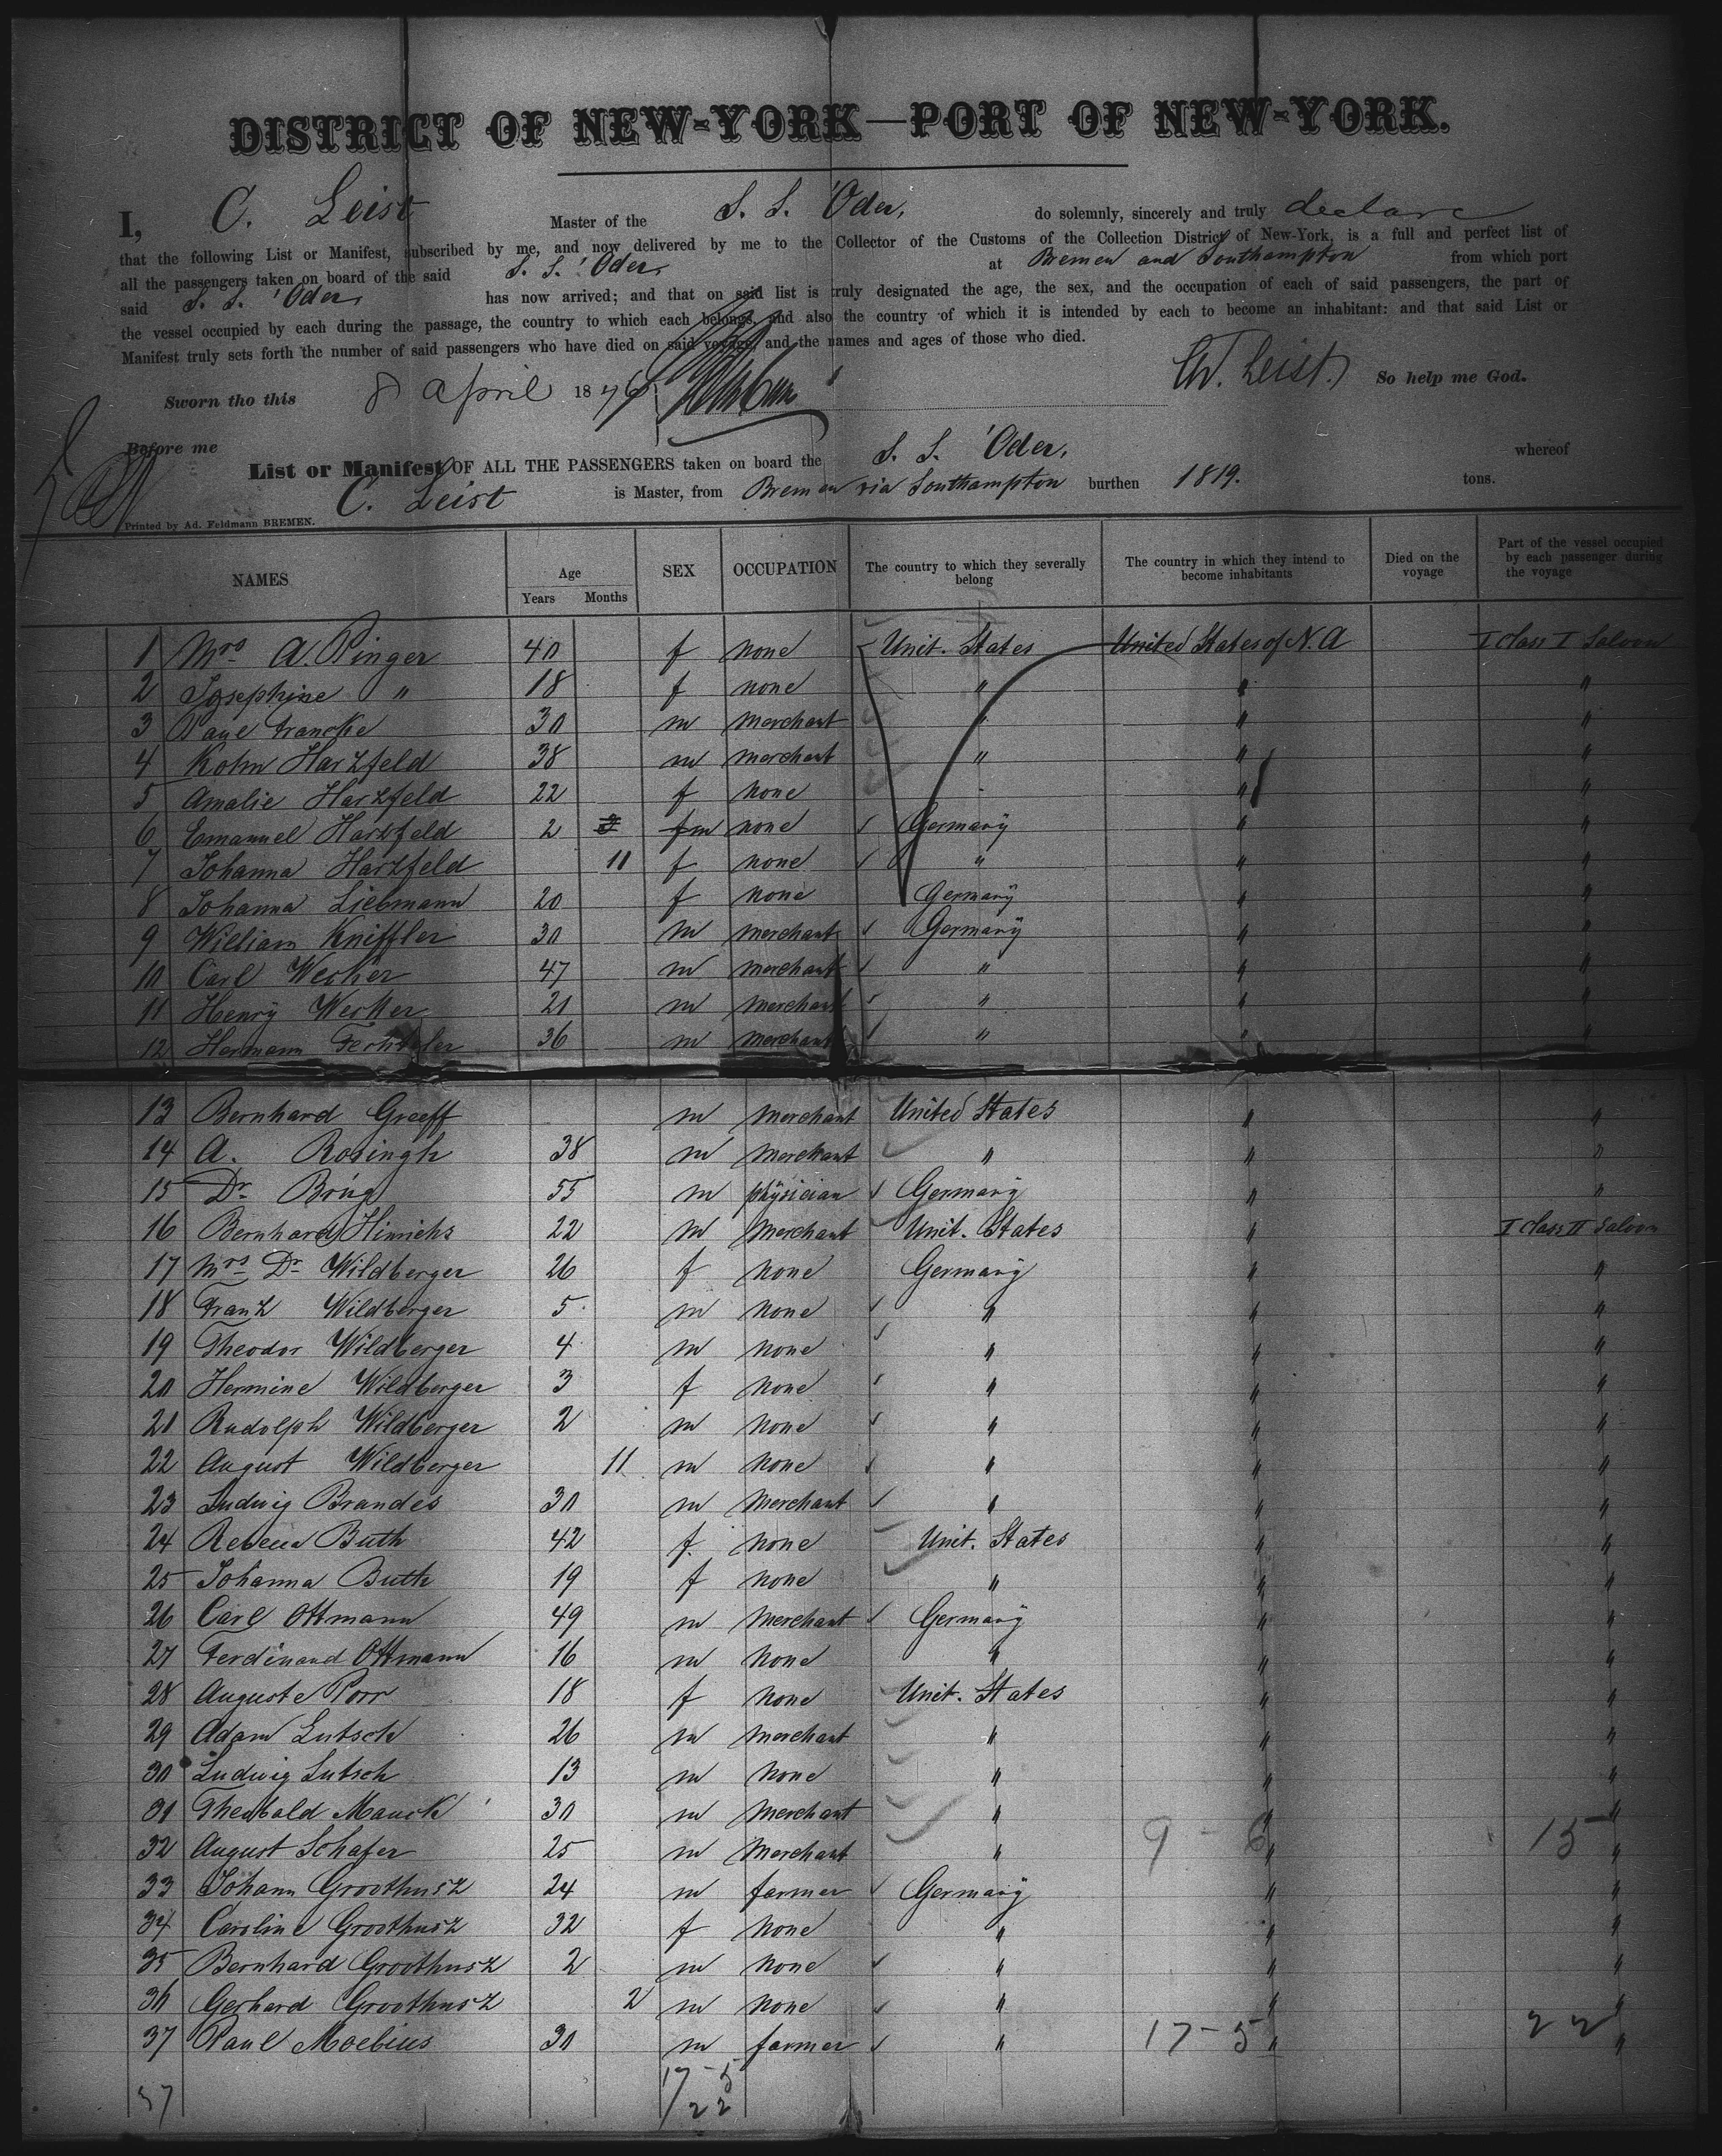 DISTRICT OF NEW-YORK—PORT OF NEW-YORK.
I, C. Leist Master of the S. S. 'Oder, do solemnly, sincerely and truly declare
that the following List or Manifest, subscribed by me, and now delivered by me to the Collector of the Customs of the Collection District of New-York, is a full and perfect list of
all the passengers taken on board of the said S. S. 'Oder, at Bremen and Southampton from which port
said S. S. 'Oder, has now arrived; and that on said list is truly designated the age, the sex, and the occupation of each of said passengers, the part of
the vessel occupied by each during the passage, the country to which each belongs, and also the country of which it is intended by each to become an inhabitant: and that said List or
Manifest truly sets forth the number of said passengers who have died on said voyage, and the names and ages of those who died.
Sworn tho this 8 April 1876 Leist. So help me God.
Before me
List or Manifest OF ALL THE PASSENGERS taken on board the S. S. 'Oder, whereof
C. Leist is Master, from Bremen via Southampton burthen 1819. tons.
Printed by Ad. Feldmann BREMEN.
NAMES Age Years Months SEX OCCUPATION The country to which they severally belong The country in which they intend to become inhabitants Died on the voyage Part of the vessel occupied by each passenger during the voyage
1 Mrs A. Ringer 40 f none Unit. States United States of N. A I class I Saloon
2 Josephine " 18 f none " " "
3 Paul Francke 30 m merchant " " "
4 Kohn Harzfeld 38 m merchant " " "
5 Amalie Harzfeld 22 f none " " "
6 Emanuel Harzfeld 2 m none Germany " "
7 Johanna Harzfeld 11 f none " " "
8 Johanna Liebmann 20 f none Germany " "
9 William Kniffler 30 m merchant Germany " "
10 Carl Wecker 47 m merchant " " "
11 Henry Wecker 21 m merchant " " "
12 Hermann 36 m merchant " " "
13 Bernhard Graeff m merchant United States " "
14 A. Rosingh 38 m merchant " " "
15 Dr. Brüg 55 m physician Germany " "
16 Bernhard Hinrichs 22 m Merchant Unit. States " I class II Saloon
17 Mrs Dr Wildberger 26 f none Germany " "
18 Franz Wildberger 5 m none " " "
19 Theodor Wildberger 4 m none " " "
20 Hermine Wildberger 3 f none " " "
21 Rudolph Wildberger 2 m none " " "
22 August Wildberger 11 m none " " "
23 Ludwig Brandes 30 m Merchant " " "
24 Rebecca Buth 42 f. none Unit. States " "
25 Johanna Buth 19 f none " " "
26 Carl Ottmann 49 m Merchant Germany " "
27 Ferdinand Ottmann 16 m none " " "
28 Auguste Porr 18 f none Unit. States " "
29 Adam Lutsch 26 m merchant " " "
30 Ludwig Lutsch 13 m none " " "
31 Theobald Mauck 30 m merchant " " "
32 August Schafer 25 m Merchant " 9 - 6 " 15 "
33 Johann Groothusz 24 m farmer Germany " "
34 Caroline Groothusz 32 f none " " "
35 Bernhard Groothusz 2 m none " " "
36 Gerhard Groothusz 2 m none " " "
37 Paul Moebius 30 m farmer " 17 - 5 " 22 "
37 17 - 5
22